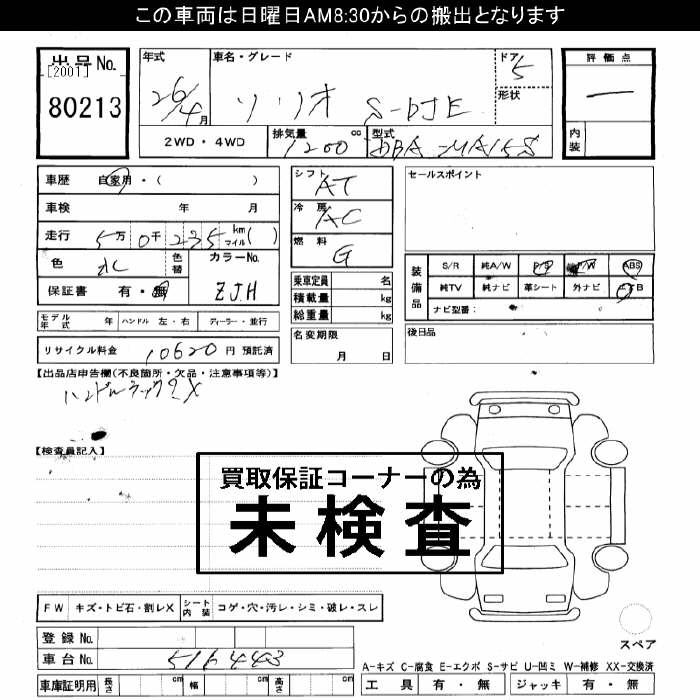 この車両は日曜日AM8:30からの搬出となります
出品No.
[2001]
80213
年式
26/4月
車名・グレード
ソリオ S-DJE
ドア
5
形状
評価点
ー
内装
2WD・4WD
排気量
1200 cc
型式
DBA-MA15S
車歴 自家用・( )
車検 年 月
走行 5万0千235 km マイル( )
色
色替
カラーNo.
ZJH
保証書 有・無
モデル年式 年 ハンドル 左・右 ディーラー・並行
リサイクル料金 10620円 預託済
シフト
AT
冷房
AC
燃料
G
乗車定員 名
積載量 kg
総重量 kg
名変期限
月 日
セールスポイント
装備品
S/R 純A/W P/S P/W ABS
純TV 純ナビ 革シート 外ナビ エアB
ナビ型番:
後日品
【出品店申告欄(不良箇所・欠品・注意事項等)】
【検査員記入】
買取保証コーナーの為
未検査
FW キズ・トビ石・割レX シート内装 コゲ・穴・汚レ・シミ・破レ・スレ
登録No.
車台No. 516443
車庫証明用 長さ cm 幅 cm 高さ cm
スペア
A-キズ C-腐食 E-エクボ S-サビ U-凹ミ W-補修 XX-交換済
工具 有・無 ジャッキ 有・無